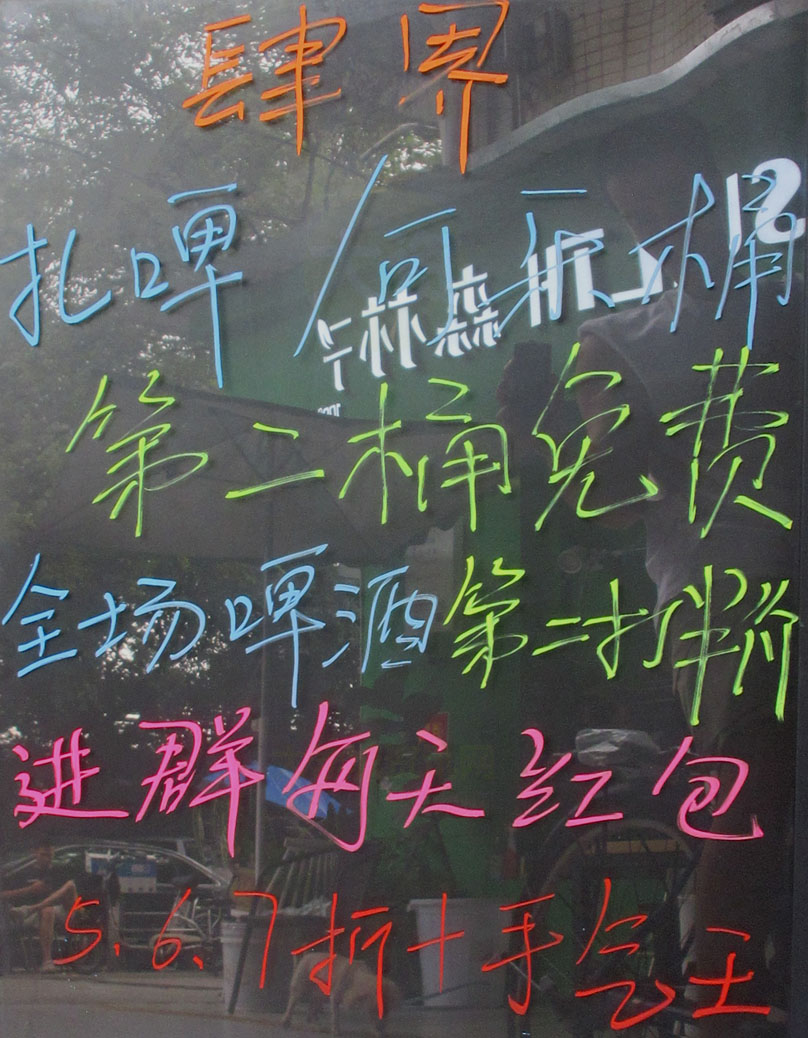 肆界
扎啤 何乐桶
第二桶免费
全场啤酒第二打半价
进群每天红包
5.6.7折十手气王